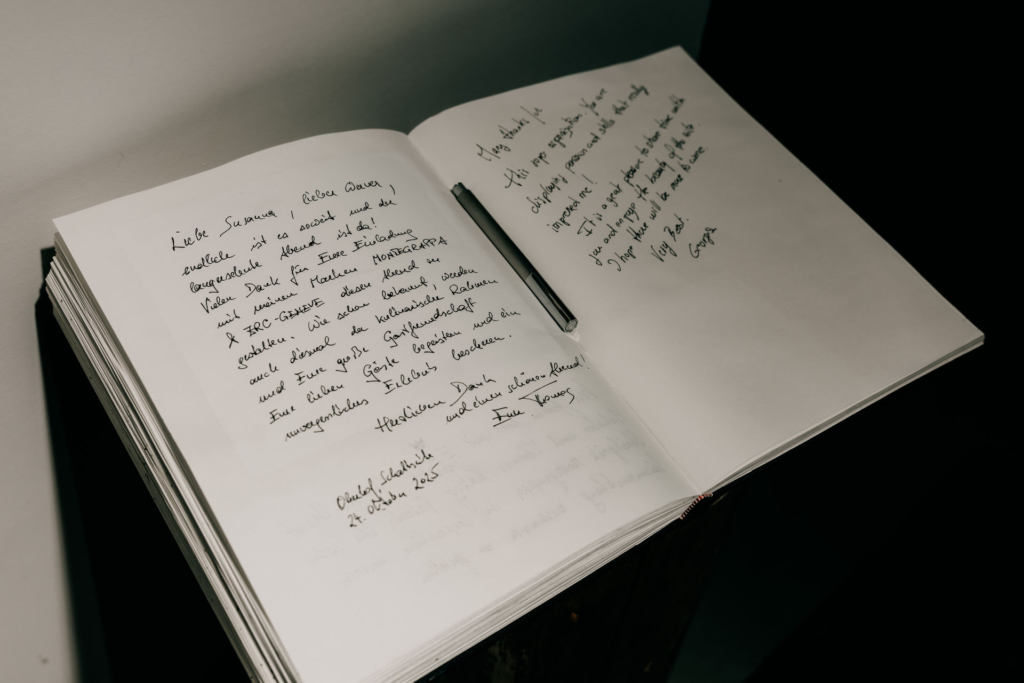 Liebe Susanna, lieber
endlich ist es soweit und der
langersehnte Abend ist da!
Vielen Dank für Eure Einladung
mit meinen Marken MONTEGRAPPA
& ERC-GENEVE diesen Abend zu
gestalten. Wie schon bekannt, werden
auch diesmal der kulinarische Rahmen
und Eure große Gastfreundschaft
Eure lieben Gäste begeistern und ein
unvergessliches Erlebnis bescheren.
Herzlichen Dank
und einen schönen Abend!
Euer Thomas
24. Oktober 2025
Many thanks for
this super organisation. You are
displaying passion and skills that really
impressed me!
It is a great pleasure to share time with
you and enjoy the beauty of the
I hope there will be more to come.
Very Best.